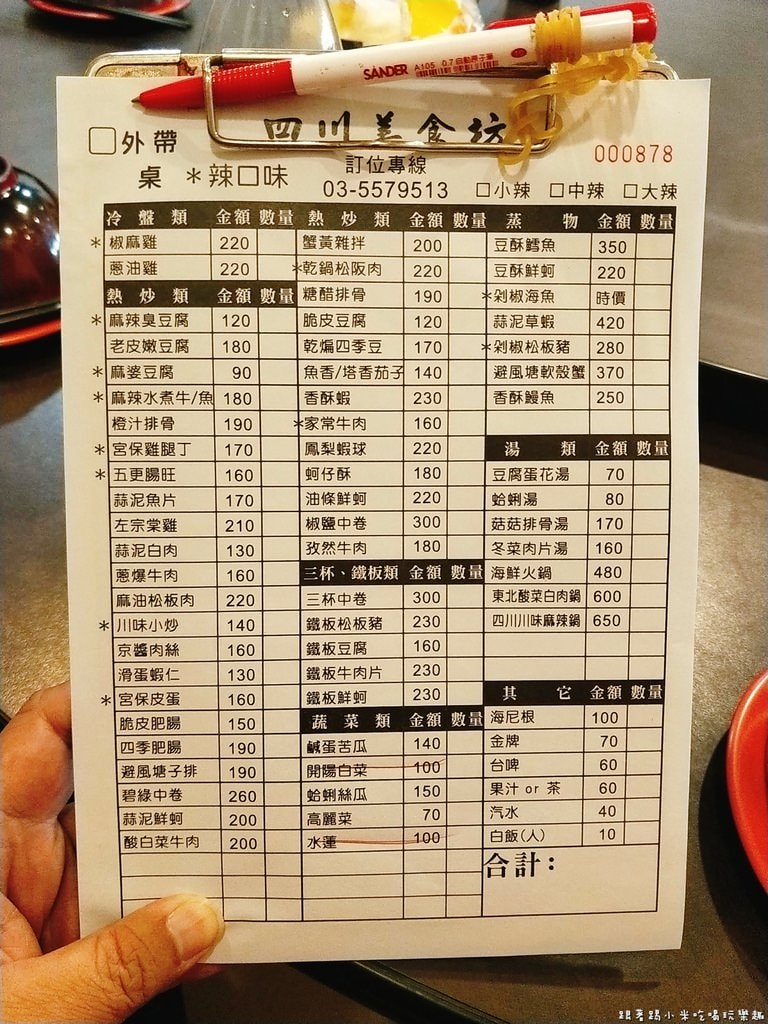 SANDER A105 0.7 自動原子筆
四川美食坊
□外帶
訂位專線
000878
桌 *辣口味
03-5579513 □小辣 □中辣 □大辣
冷盤類 金額 數量
*椒麻雞 220
蔥油雞 220
熱炒類 金額 數量
*麻辣臭豆腐 120
老皮嫩豆腐 180
*麻婆豆腐 90
*麻辣水煮牛/魚 180
橙汁排骨 190
*宮保雞腿丁 170
*五更腸旺 160
蒜泥魚片 170
左宗棠雞 210
蒜泥白肉 130
蔥爆牛肉 160
麻油松板肉 220
*川味小炒 140
京醬肉絲 160
滑蛋蝦仁 130
*宮保皮蛋 160
脆皮肥腸 150
四季肥腸 190
避風塘子排 190
碧綠中卷 260
蒜泥鮮蚵 200
酸白菜牛肉 200
熱炒類 金額 數量
蟹黃雜拌 200
*乾鍋松阪肉 220
糖醋排骨 190
脆皮豆腐 120
乾煸四季豆 170
魚香/塔香茄子 140
香酥蝦 230
*家常牛肉 160
鳳梨蝦球 220
蚵仔酥 180
油條鮮蚵 220
椒鹽中卷 300
孜然牛肉 180
三杯、鐵板類 金額 數量
三杯中卷 300
鐵板松板豬 230
鐵板豆腐 160
鐵板牛肉片 230
鐵板鮮蚵 230
蔬菜類 金額 數量
鹹蛋苦瓜 140
開陽白菜 100
蛤蜊絲瓜 150
高麗菜 70
水蓮 100
蒸物 金額 數量
豆酥鱈魚 350
豆酥鮮蚵 220
*剁椒海魚 時價
蒜泥草蝦 420
*剁椒松板豬 280
避風塘軟殼蟹 370
香酥鰻魚 250
湯類 金額 數量
豆腐蛋花湯 70
蛤蜊湯 80
菇菇排骨湯 170
冬菜肉片湯 160
海鮮火鍋 480
東北酸菜白肉鍋 600
四川川味麻辣鍋 650
其它 金額 數量
海尼根 100
金牌 70
台啤 60
果汁 or 茶 60
汽水 40
白飯(人) 10
合計：
跟著踢小米吃喝玩樂趣